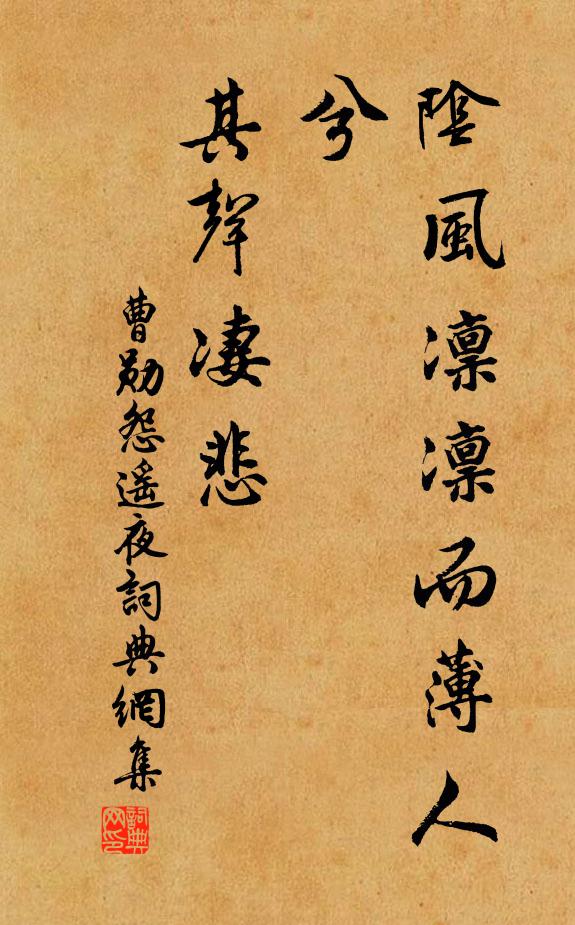 陰風凛凛而薄人
兮
其聲凄悲
曹勛怨遙夜詞典網集
詞典
网印